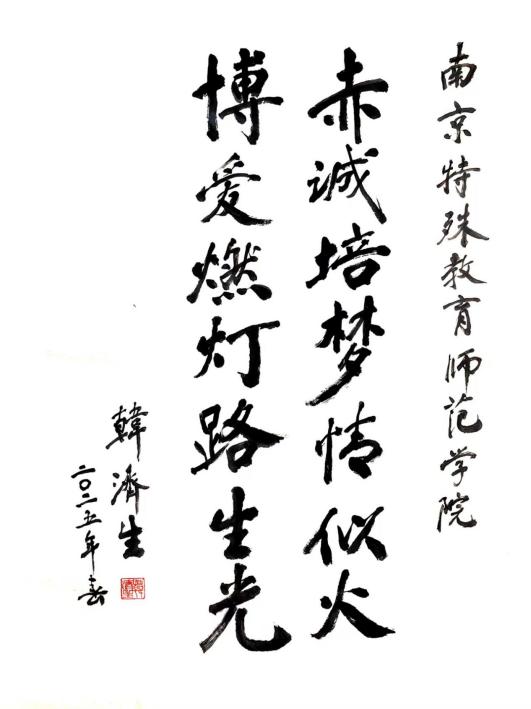 南京特殊教育师范学院
赤诚培梦情似火
博爱燃灯路生光
韓濟生
二〇二五年春